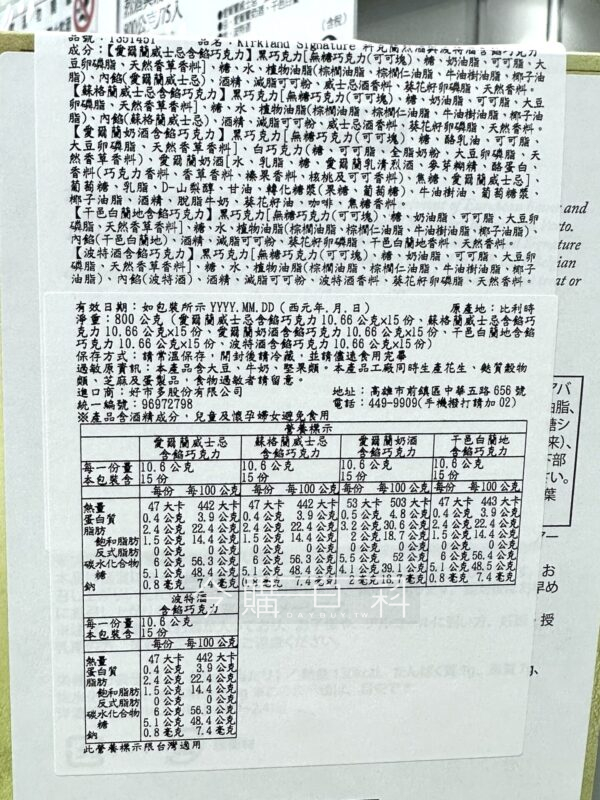 品號：1351451 品名：Kirkland Signature 料克高烈酒與波特酒含餡巧克力
成分：【愛爾蘭威士忌含餡巧克力】黑巧克力[無糖巧克力(可可塊)、糖、奶油脂、可可脂、大
豆卵磷脂、天然香草香料]、糖、水、植物油脂(棕櫚油脂、棕櫚仁油脂、牛油樹油脂、椰子油
脂)、內餡(愛爾蘭威士忌)、酒精、減脂可可粉、威士忌酒香料、葵花籽卵磷脂、天然香料。
【蘇格蘭威士忌含餡巧克力】黑巧克力[無糖巧克力(可可塊)、糖、奶油脂、可可脂、大豆
卵磷脂、天然香草香料]、糖、水、植物油脂(棕櫚油脂、棕櫚仁油脂、牛油樹油脂、椰子油
脂)、內餡(蘇格蘭威士忌)、酒精、減脂可可粉、威士忌酒香料、葵花籽卵磷脂、天然香料。
【愛爾蘭奶酒含餡巧克力】黑巧克力[無糖巧克力(可可塊)、糖、酪乳油、可可脂、
大豆卵磷脂、天然香草香料]、白巧克力(糖、可可脂、全脂奶粉、大豆卵磷脂、天
然香草香料)、愛爾蘭奶酒[水、乳脂、糖、愛爾蘭乳清烈酒、麥芽糊精、酪蛋白、
香料(巧克力香料、香草香料、榛果香料、核桃及可可香料)、焦糖、愛爾蘭威士忌]、
葡萄糖、乳脂、D-山梨醇、甘油、轉化糖漿(果糖、葡萄糖)、牛油樹油、葡萄糖漿、
椰子油脂、酒精、脫脂牛奶、葵花籽油、咖啡、焦糖香料。
【干邑白蘭地含餡巧克力】黑巧克力[無糖巧克力(可可塊)、糖、奶油脂、可可脂、大豆卵
磷脂、天然香草香料]、糖、水、植物油脂(棕櫚油脂、棕櫚仁油脂、牛油樹油脂、椰子油脂)、
內餡(干邑白蘭地)、酒精、減脂可可粉、葵花籽卵磷脂、干邑白蘭地香料、天然香料。
【波特酒含餡巧克力】黑巧克力[無糖巧克力(可可塊)、糖、奶油脂、可可脂、大豆卵
磷脂、天然香草香料]、糖、水、植物油脂(棕櫚油脂、棕櫚仁油脂、牛油樹油脂、椰子油
脂)、內餡(波特酒)、酒精、減脂可可粉、波特酒香料、葵花籽卵磷脂、天然香料。
有效日期：如包裝所示YYYY.MM.DD (西元年.月.日) 原產地：比利時
淨重：800 公克 (愛爾蘭威士忌含餡巧克力 10.66 公克x15份、蘇格蘭威士忌含餡巧克
力 10.66 公克x15份、愛爾蘭奶酒含餡巧克力 10.66 公克x15份、干邑白蘭地含餡巧
克力 10.66 公克x15份、波特酒含餡巧克力 10.66 公克x15份)
保存方式：請常溫保存，開封後請冷藏，並請儘速食用完畢
過敏原資訊：本產品含大豆、牛奶、堅果類。本產品工廠同時生產花生、麩質穀物
類、芝麻及蛋製品，食物過敏者請留意。
進口商：好市多股份有限公司 地址：高雄市前鎮區中華五路656號
統一編號：96972798 電話：449-9909(手機撥打請加02)
※產品含酒精成分，兒童及懷孕婦女避免食用
營養標示
愛爾蘭威士忌含餡巧克力 蘇格蘭威士忌含餡巧克力 愛爾蘭奶酒含餡巧克力 干邑白蘭地含餡巧克力
每一份量 10.6 公克 10.6 公克 10.6 公克 10.6 公克
本包裝含 15份 15份 15份 15份
每份 每100公克 每份 每100公克 每份 每100公克 每份 每100公克
熱量 47 大卡 442 大卡 47 大卡 442 大卡 53 大卡 503 大卡 47 大卡 443 大卡
蛋白質 0.4 公克 3.9 公克 0.4 公克 3.9 公克 0.5 公克 4.8 公克 0.4 公克 3.9 公克
脂肪 2.4 公克 22.4 公克 2.4 公克 22.4 公克 3.2 公克 30.6 公克 2.4 公克 22.4 公克
飽和脂肪 1.5 公克 14.4 公克 1.5 公克 14.4 公克 2 公克 18.7 公克 1.5 公克 14.4 公克
反式脂肪 0 公克 0 公克 0 公克 0 公克 0 公克 0 公克 0 公克 0 公克
碳水化合物 6 公克 56.3 公克 6 公克 56.3 公克 5.5 公克 52 公克 6 公克 56.4 公克
糖 5.1 公克 48.4 公克 5.1 公克 48.4 公克 4.1 公克 39.1 公克 5.1 公克 48.5 公克
鈉 0.8 毫克 7.4 毫克 0.8 毫克 7.4 毫克 2 毫克 0.8 毫克 7.4 毫克
波特酒含餡巧克力
每一份量 10.6 公克
本包裝含 15份
每份 每100公克
熱量 47 大卡 442 大卡
蛋白質 0.4 公克 3.9 公克
脂肪 2.4 公克 22.4 公克
飽和脂肪 1.5 公克 14.4 公克
反式脂肪 0 公克 0 公克
碳水化合物 6 公克 56.3 公克
糖 5.1 公克 48.4 公克
鈉 0.8 毫克 7.4 毫克
此營養標示限台灣適用